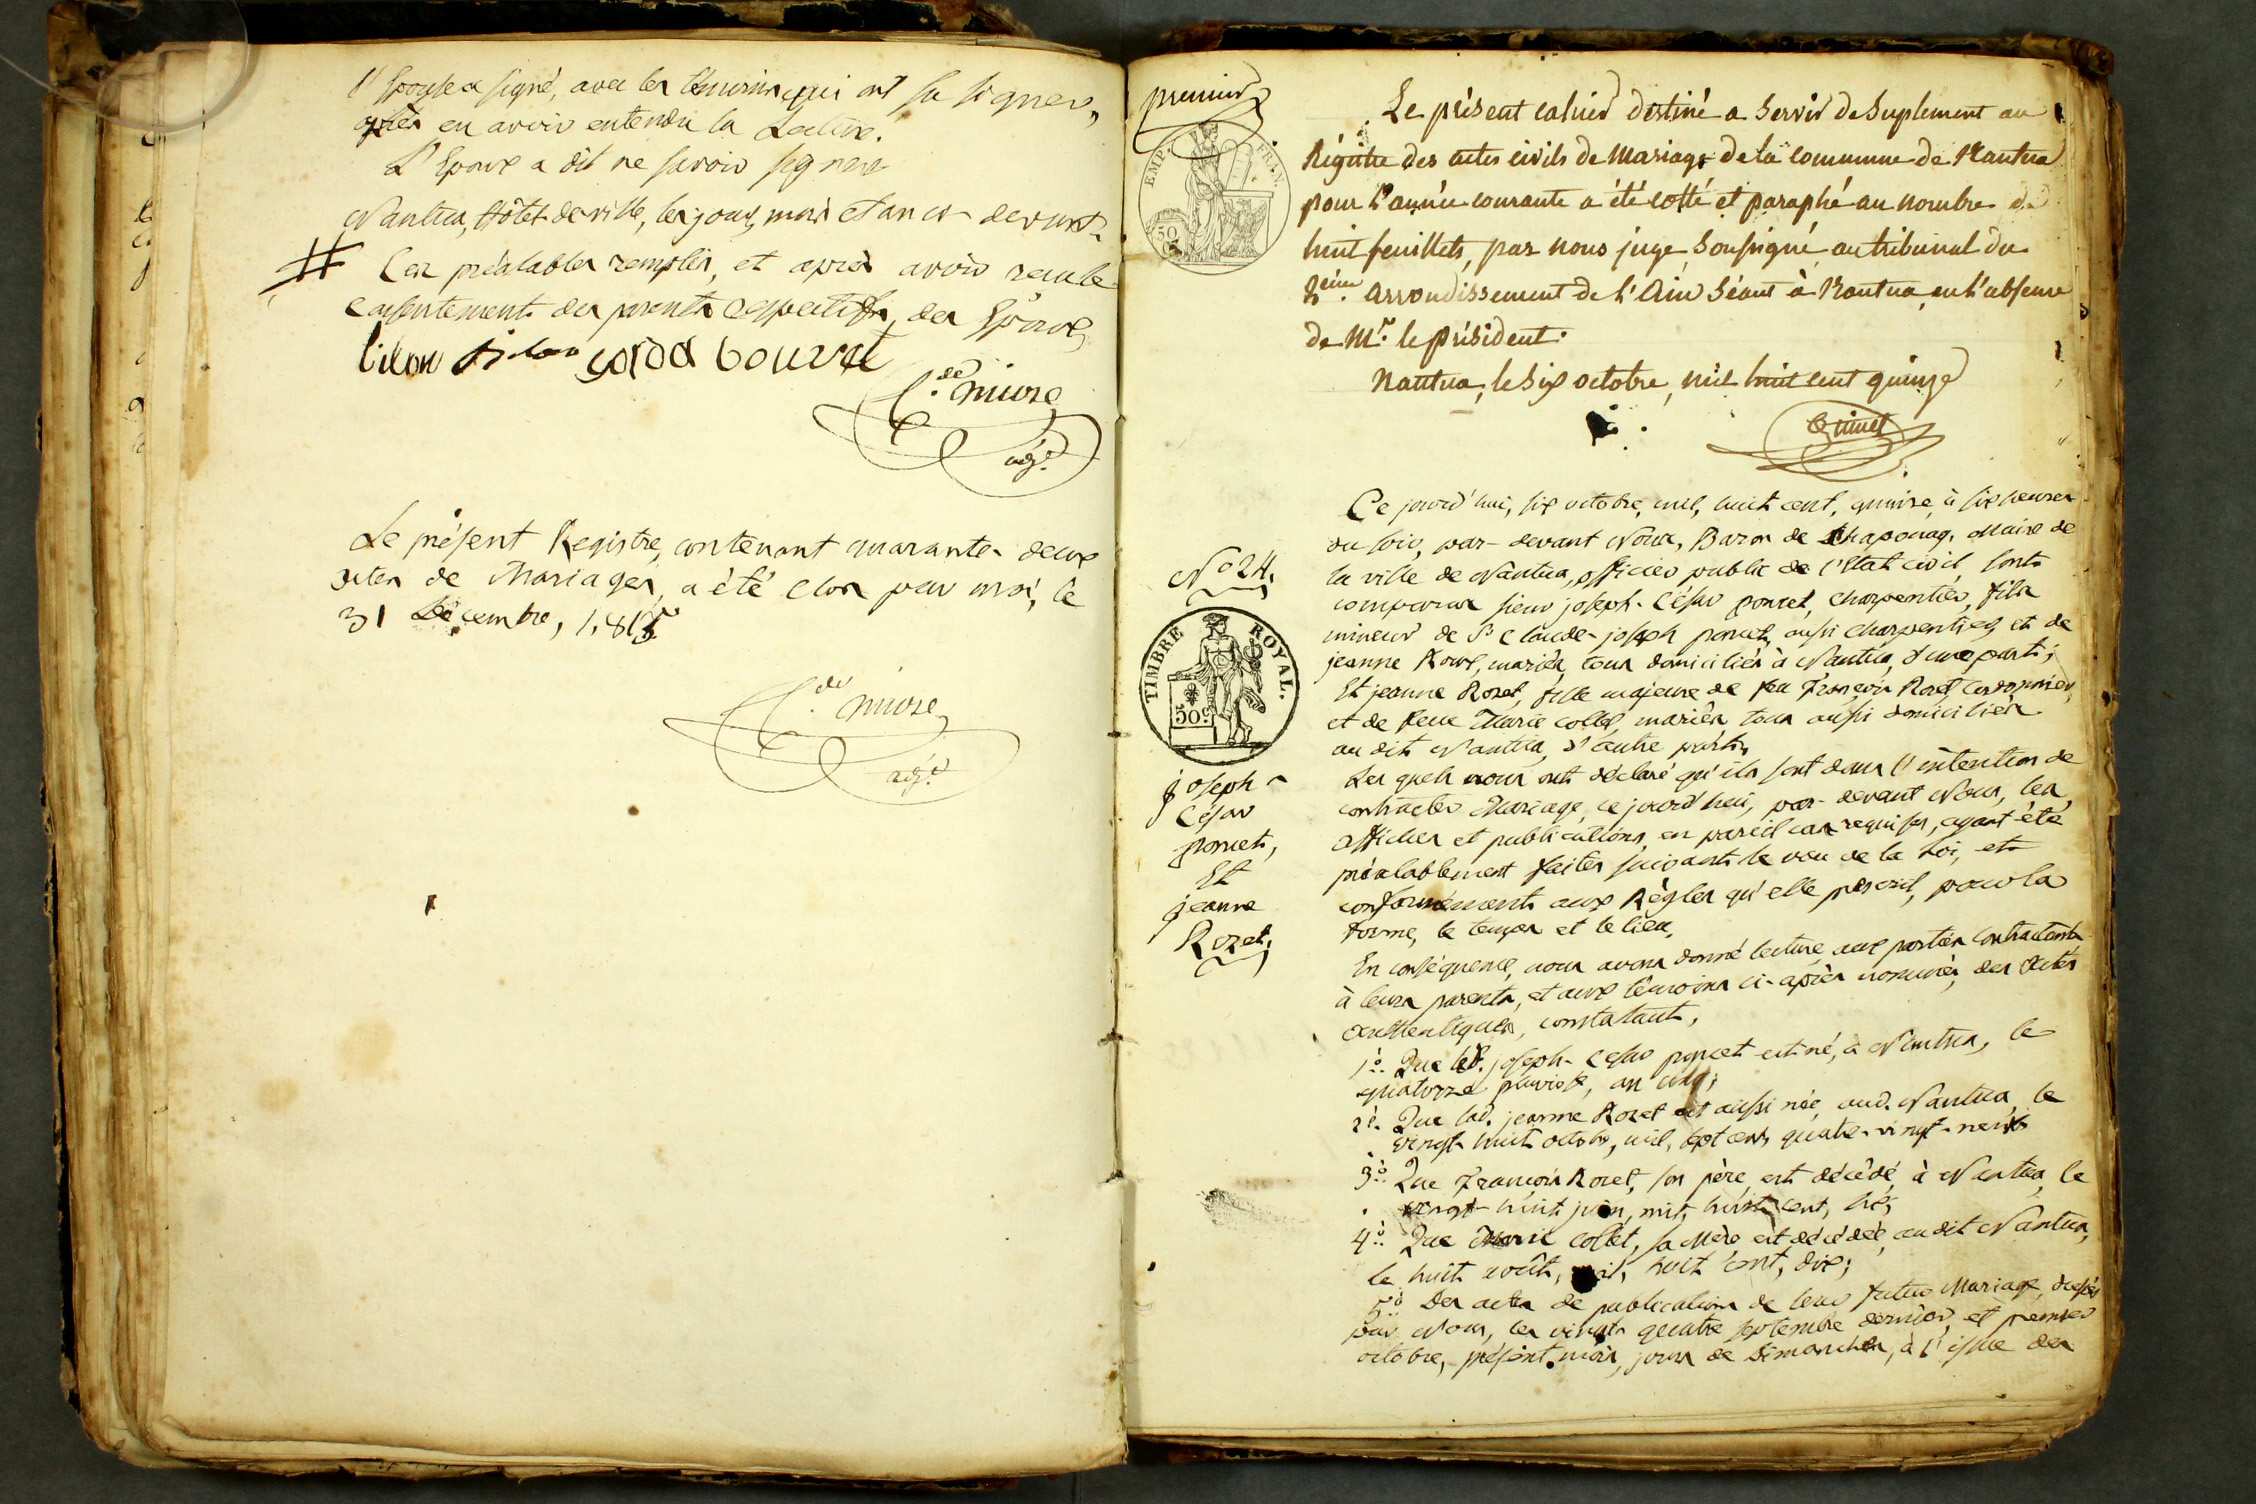 l'Epouse a signé, avec les témoins qui ont su signer,
après en avoir entendu la Lecture.
L'Epoux a dit ne savoir signer
Nantua, Hôtel de ville, les jour, mois et an ci-devant.
# Ces préalables remplis, et après avoir reçu le
consentement des parents respectifs, des Epoux,
bouvet
Cde. nivore
adj.t
Le présent Registre, contenant quarante-deux
actes de Mariages, a été clos par moi, le
31 Décembre, 1,815
Cde. nivore
adj.t
premier
EMP. FRAN.
50
Le présent cahier destiné a servir de suplement au
Régistre des actes civils de Mariage de la commune de Nantua
pour l'année courante a été cotté et paraphé au nombre de
huit feuillets, par nous juge soussigné au tribunal du
2ème. arrondissement de l'Ain séant à Nantua, en l'absence
de Mr. le président.
Nantua, le six octobre, mil huit cent quinze
Nº 24.
TIMBRE ROYAL.
50c
joseph-
César
poncet,
Et
jeanne
Rozet.
Ce jourd'hui, six octobre, mil, huit cent, quinze, à six heures
du soir, par-devant Nous, Baron de Maire de
la ville de Nantua, officier public de l'Etat civil sont
comparus sieur joseph-César poncet, charpentier, fils
mineur de Sr. Claude-joseph poncet, aussi charpentier, et de
jeanne Roux, mariés, tous domiciliés à Nantua, d'une part;
Et jeanne Rozet, fille majeure de feu François Rozet, cordonnier,
et de feue Marie collet, mariés tous aussi domiciliés
au dit Nantua, d'autre part,
Les quels nous ont déclaré qu'ils sont dans l'intention de
contracter Mariage, ce jourd'hui, par-devant Nous, les
affiches et publications, en pareil cas requises, ayant été
préalablement faites suivant le vœu de la Loi, et
conformément aux Règles qu'elle prescrit, pour la
forme, le temps et le lieu,
En conséquence, nous avons donné lecture, aux parties contractantes
à leurs parents, et aux témoins ci-après nommés, des Actes
authentiques, constatant,
1º. Que led. joseph-César poncet est né, à Nantua, le
quatorze pluviose, an cinq;
2º. Que lad. jeanne Rozet est aussi née, aud. Nantua, le
vingt-huit octobre, mil, sept cent, quatre-vingt-neuf;
3º. Que François Rozet, son père, est décédé, à Nantua, le
vingt-huit juin, mil, huit cent,
4º. Que Marie collet, sa Mère est décédée, audit Nantua,
le huit août, mil, huit cent, dix;
5º. Des actes de publication de leur futur Mariage, dressés
par Nous, les vingt-quatre septembre dernier, et premier
octobre, présent mois, jours de Dimanches, à l'issue des